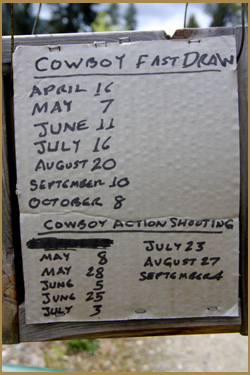 COWBOY FAST DRAW
APRIL 16
MAY 7
JUNE 11
JULY 16
AUGUST 20
SEPTEMBER 10
OCTOBER 8
COWBOY ACTION SHOOTING
MAY 8
MAY 28
JUNE 5
JUNE 25
JULY 3
JULY 23
AUGUST 27
SEPTEMBER 4